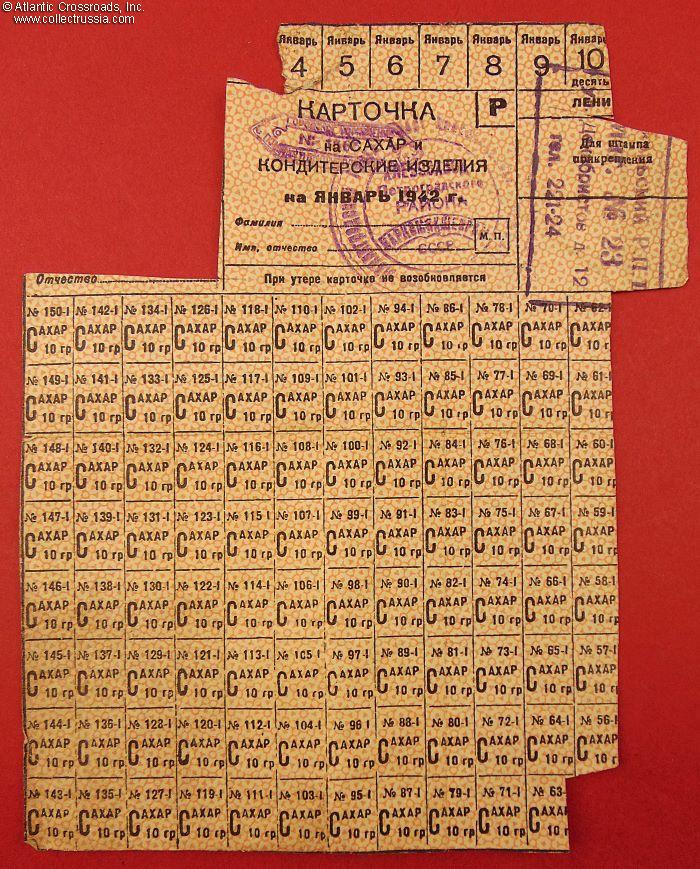 © Atlantic Crossroads, Inc.
www.collectrussia.com
Январь Январь Январь Январь Январь Январь Январь
4 5 6 7 8 9 10
КАРТОЧКА Р
на САХАР и
КОНДИТЕРСКИЕ ИЗДЕЛИЯ
на ЯНВАРЬ 1942 г.
Фамилия
Имя, отчество
М.П.
При утере карточка не возобновляется
десять
ЛЕНИ
Для штампа
прикрепления
№ 23
Декабристов д 12
тел. 2-41-24
Петроградского
РАЙОНА
СССР
Отчество
№ 150-I № 142-I № 134-I № 126-I № 118-I № 110-I № 102-I № 94-I № 86-I № 78-I № 70-I № 62-I
САХАР САХАР САХАР САХАР САХАР САХАР САХАР САХАР САХАР САХАР САХАР САХАР
10 гр 10 гр 10 гр 10 гр 10 гр 10 гр 10 гр 10 гр 10 гр 10 гр 10 гр 10 гр
№ 149-I № 141-I № 133-I № 125-I № 117-I № 109-I № 101-I № 93-I № 85-I № 77-I № 69-I № 61-I
САХАР САХАР САХАР САХАР САХАР САХАР САХАР САХАР САХАР САХАР САХАР САХАР
10 гр 10 гр 10 гр 10 гр 10 гр 10 гр 10 гр 10 гр 10 гр 10 гр 10 гр 10 гр
№ 148-I № 140-I № 132-I № 124-I № 116-I № 108-I № 100-I № 92-I № 84-I № 76-I № 68-I № 60-I
САХАР САХАР САХАР САХАР САХАР САХАР САХАР САХАР САХАР САХАР САХАР САХАР
10 гр 10 гр 10 гр 10 гр 10 гр 10 гр 10 гр 10 гр 10 гр 10 гр 10 гр 10 гр
№ 147-I № 139-I № 131-I № 123-I № 115 I № 107-I № 99-I № 91-I № 83-I № 75-I № 67-I № 59-I
САХАР САХАР САХАР САХАР САХАР САХАР САХАР САХАР САХАР САХАР САХАР САХАР
10 гр 10 гр 10 гр 10 гр 10 гр 10 гр 10 гр 10 гр 10 гр 10 гр 10 гр 10 гр
№ 146-I № 138-I № 130-I № 122-I № 114-I № 106-I № 98-I № 90-I № 82-I № 74-I № 66-I № 58-I
САХАР САХАР САХАР САХАР САХАР САХАР САХАР САХАР САХАР САХАР САХАР САХАР
10 гр 10 гр 10 гр 10 гр 10 гр 10 гр 10 гр 10 гр 10 гр 10 гр 10 гр 10 гр
№ 145-I № 137-I № 129-I № 121-I № 113-I № 105-I № 97-I № 89-I № 81-I № 73-I № 65-I № 57-I
САХАР САХАР САХАР САХАР САХАР САХАР САХАР САХАР САХАР САХАР САХАР САХАР
10 гр 10 гр 10 гр 10 гр 10 гр 10 гр 10 гр 10 гр 10 гр 10 гр 10 гр 10 гр
№ 144-I № 136-I № 128-I № 120-I № 112-I № 104-I № 96 I № 88-I № 80-I № 72-I № 64-I № 56-I
САХАР САХАР САХАР САХАР САХАР САХАР САХАР САХАР САХАР САХАР САХАР САХАР
10 гр 10 гр 10 гр 10 гр 10 гр 10 гр 10 гр 10 гр 10 гр 10 гр 10 гр 10 гр
№ 143-I № 135-I № 127-I № 119-I № 111-I № 103-I № 95-I № 87-I № 79-I № 71-I № 63-
САХАР САХАР САХАР САХАР САХАР САХАР САХАР САХАР САХАР САХАР САХАР
10 гр 10 гр 10 гр 10 гр 10 гр 10 гр 10 гр 10 гр 10 гр 10 гр 10 гр